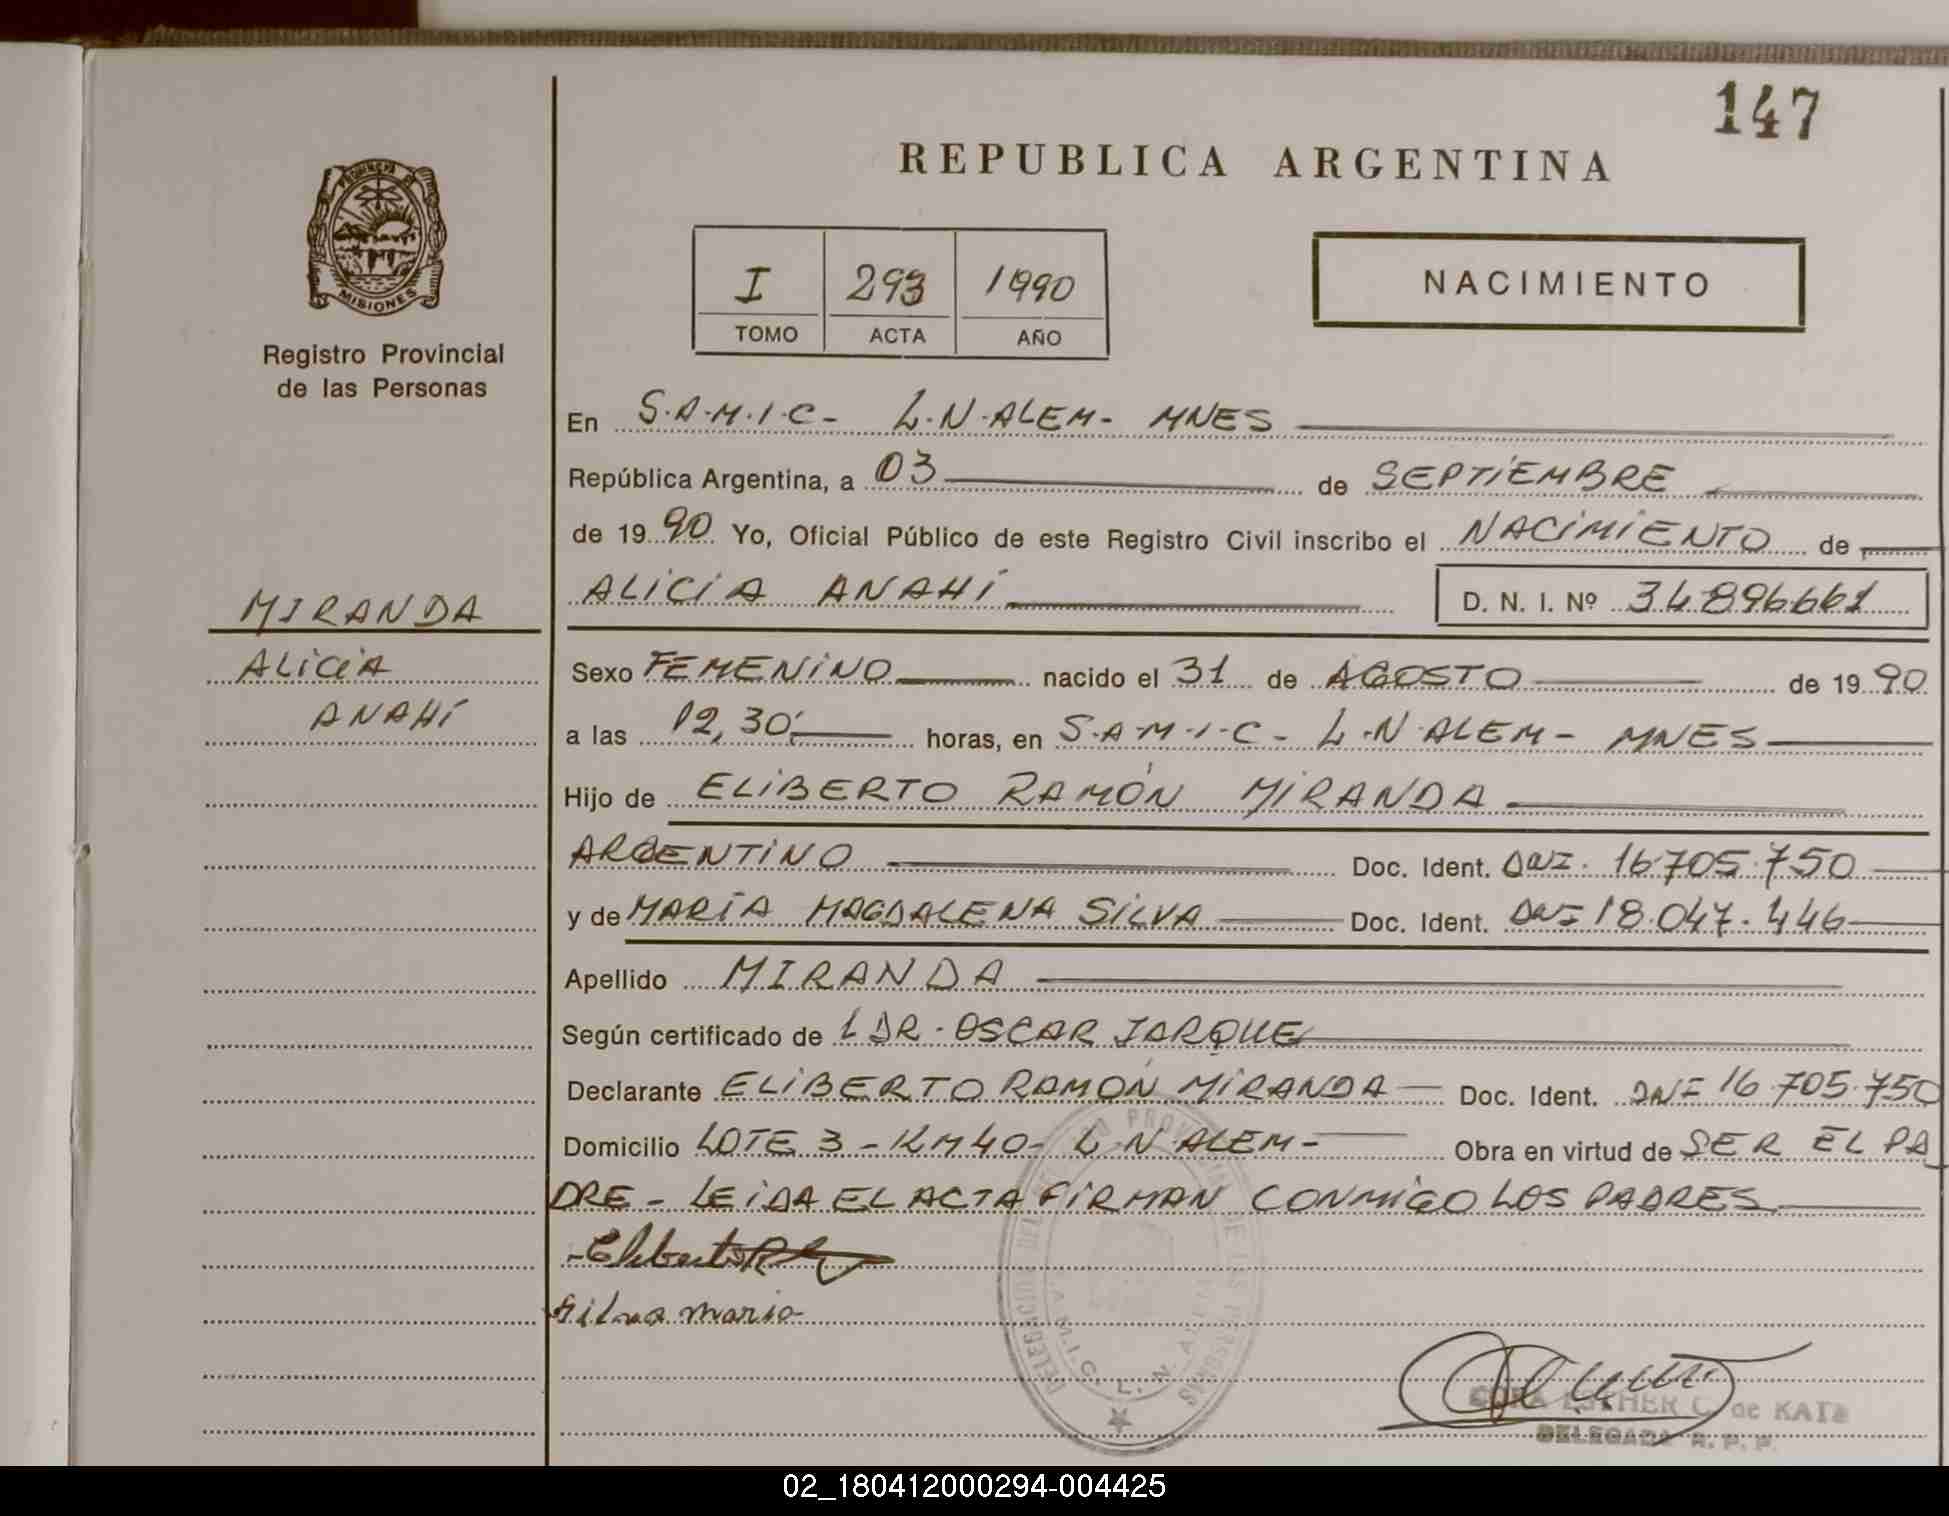 147
REPUBLICA ARGENTINA
PROVINCIA DE
MISIONES
Registro Provincial
de las Personas
I 293 1990
TOMO ACTA AÑO
NACIMIENTO
En S.A.M.I.C- L.N.ALEM- MNES
República Argentina, a 03 de SEPTIEMBRE
de 1990 Yo, Oficial Público de este Registro Civil inscribo el NACIMIENTO de
ALICIA ANAHÍ D. N. I. Nº 34896661
MIRANDA
ALICIA
ANAHÍ
Sexo FEMENINO nacido el 31 de AGOSTO de 1990
a las 12,30; horas, en S.A.M.I.C- L.N.ALEM- MNES
Hijo de ELIBERTO RAMÓN MIRANDA
ARGENTINO Doc. Ident. DNI. 16.705.750
y de MARÍA MAGDALENA SILVA Doc. Ident. DNI 18.047.446
Apellido MIRANDA
Según certificado de 1 DR. OSCAR JARQUE
Declarante ELIBERTO RAMÓN MIRANDA Doc. Ident. DNI 16.705.750
Domicilio LOTE 3 - KM40- L N ALEM- Obra en virtud de SER EL PA
DRE - LEIDA EL ACTA FIRMAN CONMIGO LOS PADRES
Silva maria
ESTHER C. de KATZ
DELEGADA R. P. P.
02_180412000294-004425